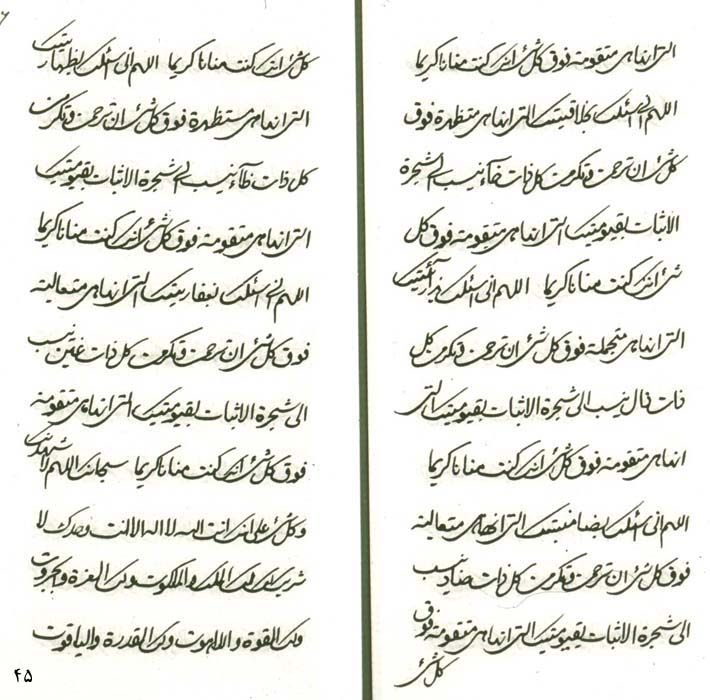 التی انها هی متقومة فوق کل شیء انک کنت منانا کریما
اللهم انی اسئلک بخلاقیتک التی انها هی متظهرة فوق
کل شیء ان ترحمن وتکرمن کل ذات خاء ینسب الی شجرة
الاثبات بقیومیتک التی انها هی متقومة فوق کل
شیء انک کنت منانا کریما اللهم انی اسئلک بذرآئیتک
التی انها هی متجملة فوق کل شیء ان ترحمن وتکرمن کل
ذات ذال ینسب الی شجرة الاثبات بقیومیتک التی
انها هی متقومة فوق کل شیء انک کنت منانا کریما
اللهم انی اسئلک بضامنیتک التی انها هی متعالیة
فوق کل شیء ان ترحمن وتکرمن کل ذات ضاد ینسب
الی شجرة الاثبات بقیومیتک التی انها هی متقومة فوق
کل شیء
کل شیء انک کنت منانا کریما اللهم انی اسئلک بظهاریتک
التی انها هی مستظهرة فوق کل شیء ان ترحمن وتکرمن
کل ذات ظاء ینسب الی شجرة الاثبات بقیومیتک
التی انها هی متقومة فوق کل شیء انک کنت منانا کریما
اللهم انی اسئلک بغفاریتک التی انها هی متعالیة
فوق کل شیء ان ترحمن وتکرمن کل ذات غین ینسب
الی شجرة الاثبات بقیومیتک التی انها هی متقومة
فوق کل شیء انک کنت منانا کریما سبحانک اللهم لاشهدنک
وکل شیء علی انک انت الله لا اله الا انت وحدک لا
شریک لک لک الملک والملکوت ولک العزة والجبروت
ولک القوة واللاهوت ولک القدرة والیاقوت
۴۵